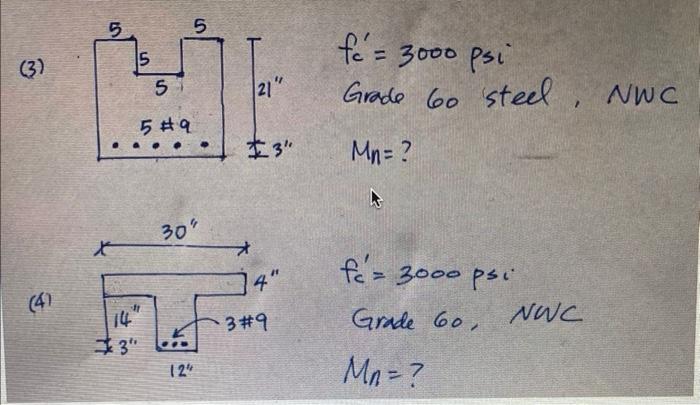 (3)
5
5
5
5
5 #9
21"
3"
fc' = 3000 psi
Grade 60 steel, NWC
Mn = ?
(4)
30"
4"
14"
3"
3#9
12"
fc' = 3000 psi
Grade 60, NWC
Mn = ?